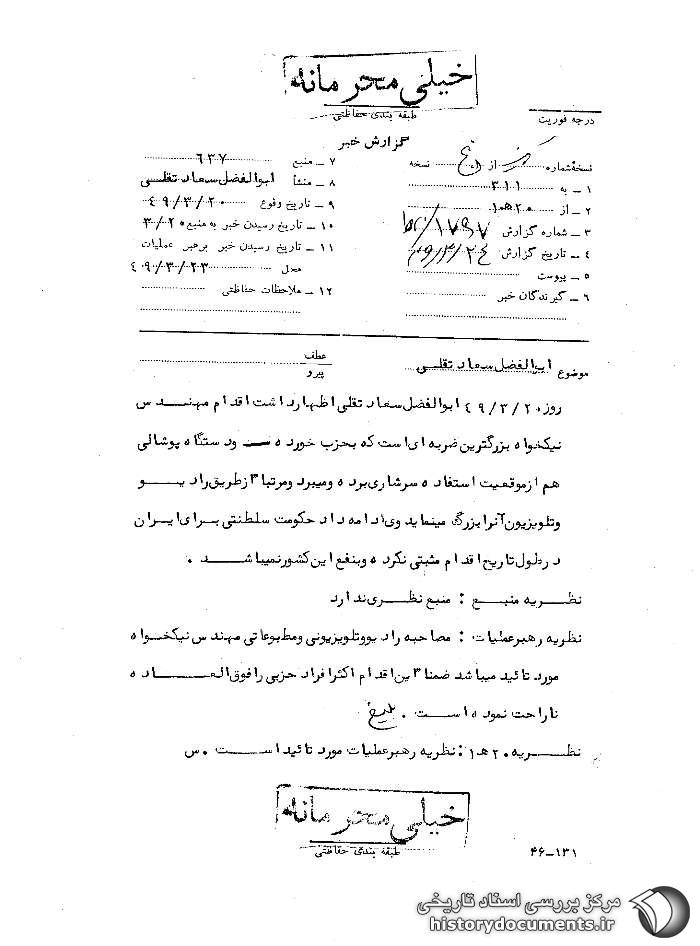 خیلی محرمانه
طبقه بندی حفاظتی
درجه فوریت
گزارش خبر
نسخهٔ شماره از نسخه
۱ ـ به ۳۱۱
۲ ـ از ۲۰ه۱۰
۳ ـ شماره گزارش
۴ ـ تاریخ گزارش
۵ ـ پیوست
۶ ـ گیرندگان خبر
۷ ـ منبع ۶۳۷
۸ ـ منشأ ابوالفضل سعادتقلی
۹ ـ تاریخ وقوع ۴۹/۳/۲۰
۱۰ ـ تاریخ رسیدن خبر به منبع ۳/۲۰
۱۱ ـ تاریخ رسیدن خبر برهبر عملیات
محل ۴۰۹/۳/۲۳
۱۲ ـ ملاحظات حفاظتی
موضوع ابوالفضل سعادتقلی
عطف
پیرو
روز ۴۹/۳/۲۰ ابوالفضل سعادتقلی اظهارداشت اقدام مهندس
نیکخواه بزرگترین ضربه ای است که بحزب خورده و دستگاه پوشالی
هم از موقعیت استفاده سرشاری برده و میبرد و مرتبا ۳ زطریق رادیو
و تلویزیون آنرا بزرگ مینماید وی ادامه داد حکومت سلطنتی برای ایران
در طول تاریخ اقدام مثبتی نکرده و بنفع این کشور نمیباشد .
نظریه منبع : منبع نظری ندارد
نظریه رهبرعملیات : مصاحبه رادیوو تلویزیونی و مطبوعاتی مهندس نیکخواه
مورد تائید میباشد ضمنا ۳ین اقدام اکثرافراد حزبی را فوق العاده
ناراحت نموده است .
نظریه ۲۰ه۱ : نظریه رهبرعملیات مورد تائید است . س
خیلی محرمانه
طبقه بندی حفاظتی
۴۶-۱۳۱
مرکز بررسی اسناد تاریخی
historydocuments.ir